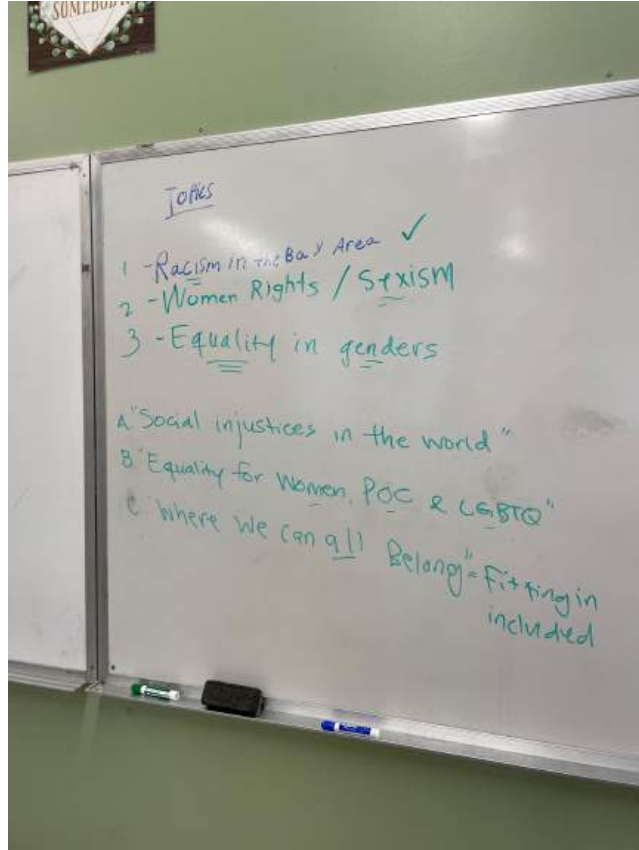 SOMEBODY
Topics
1 -Racism in the Bay Area ✓
2 -Women Rights / Sexism
3 -Equality in genders
A "Social injustices in the world"
B "Equality for Women, POC & LGBTQ"
C "Where we can all Belong" = Fitting in
included